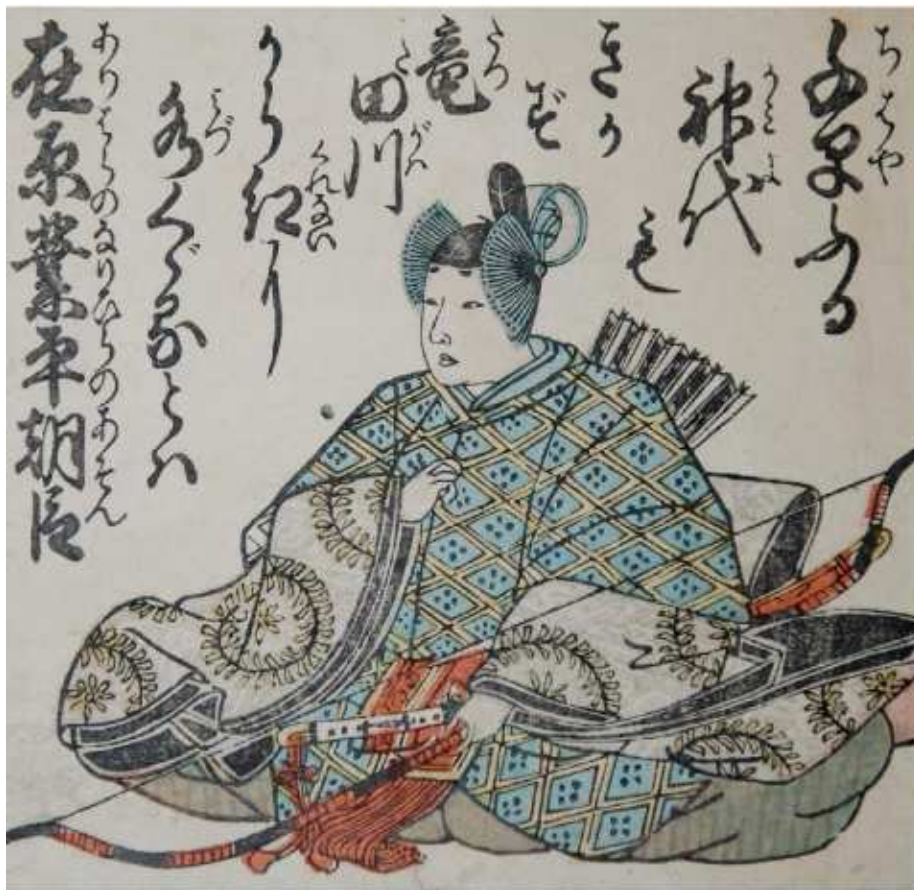 ちはや
千早ふる
かみよ
神代
も
きか
ず
たつ
竜
たがは
田川
くれない
から紅に
みづ
水くゞるとハ
ありはらのなりひらのあそん
在原業平朝臣